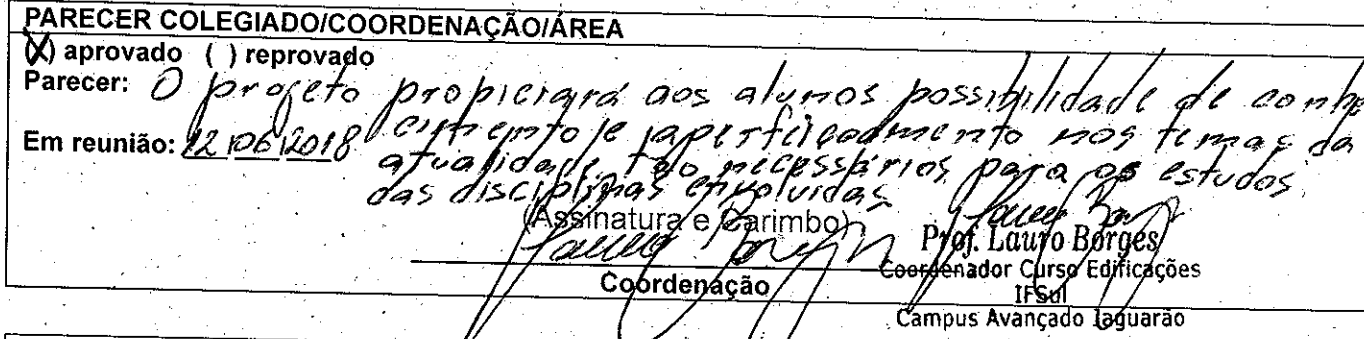 PARECER COLEGIADO/COORDENAÇÃO/ÁREA
(X) aprovado ( ) reprovado
Parecer: O projeto propiciará aos alunos possibilidade de conhe
Em reunião: 12/06/2018 cimento e aperfeiçoamento nos temas da
atualidade, tão necessários para os estudos
das disciplinas envolvidas
(Assinatura e Carimbo)
Prof. Lauro Borges
Coordenador Curso Edificações
Coordenação
IFSul
Campus Avançado Jaguarão